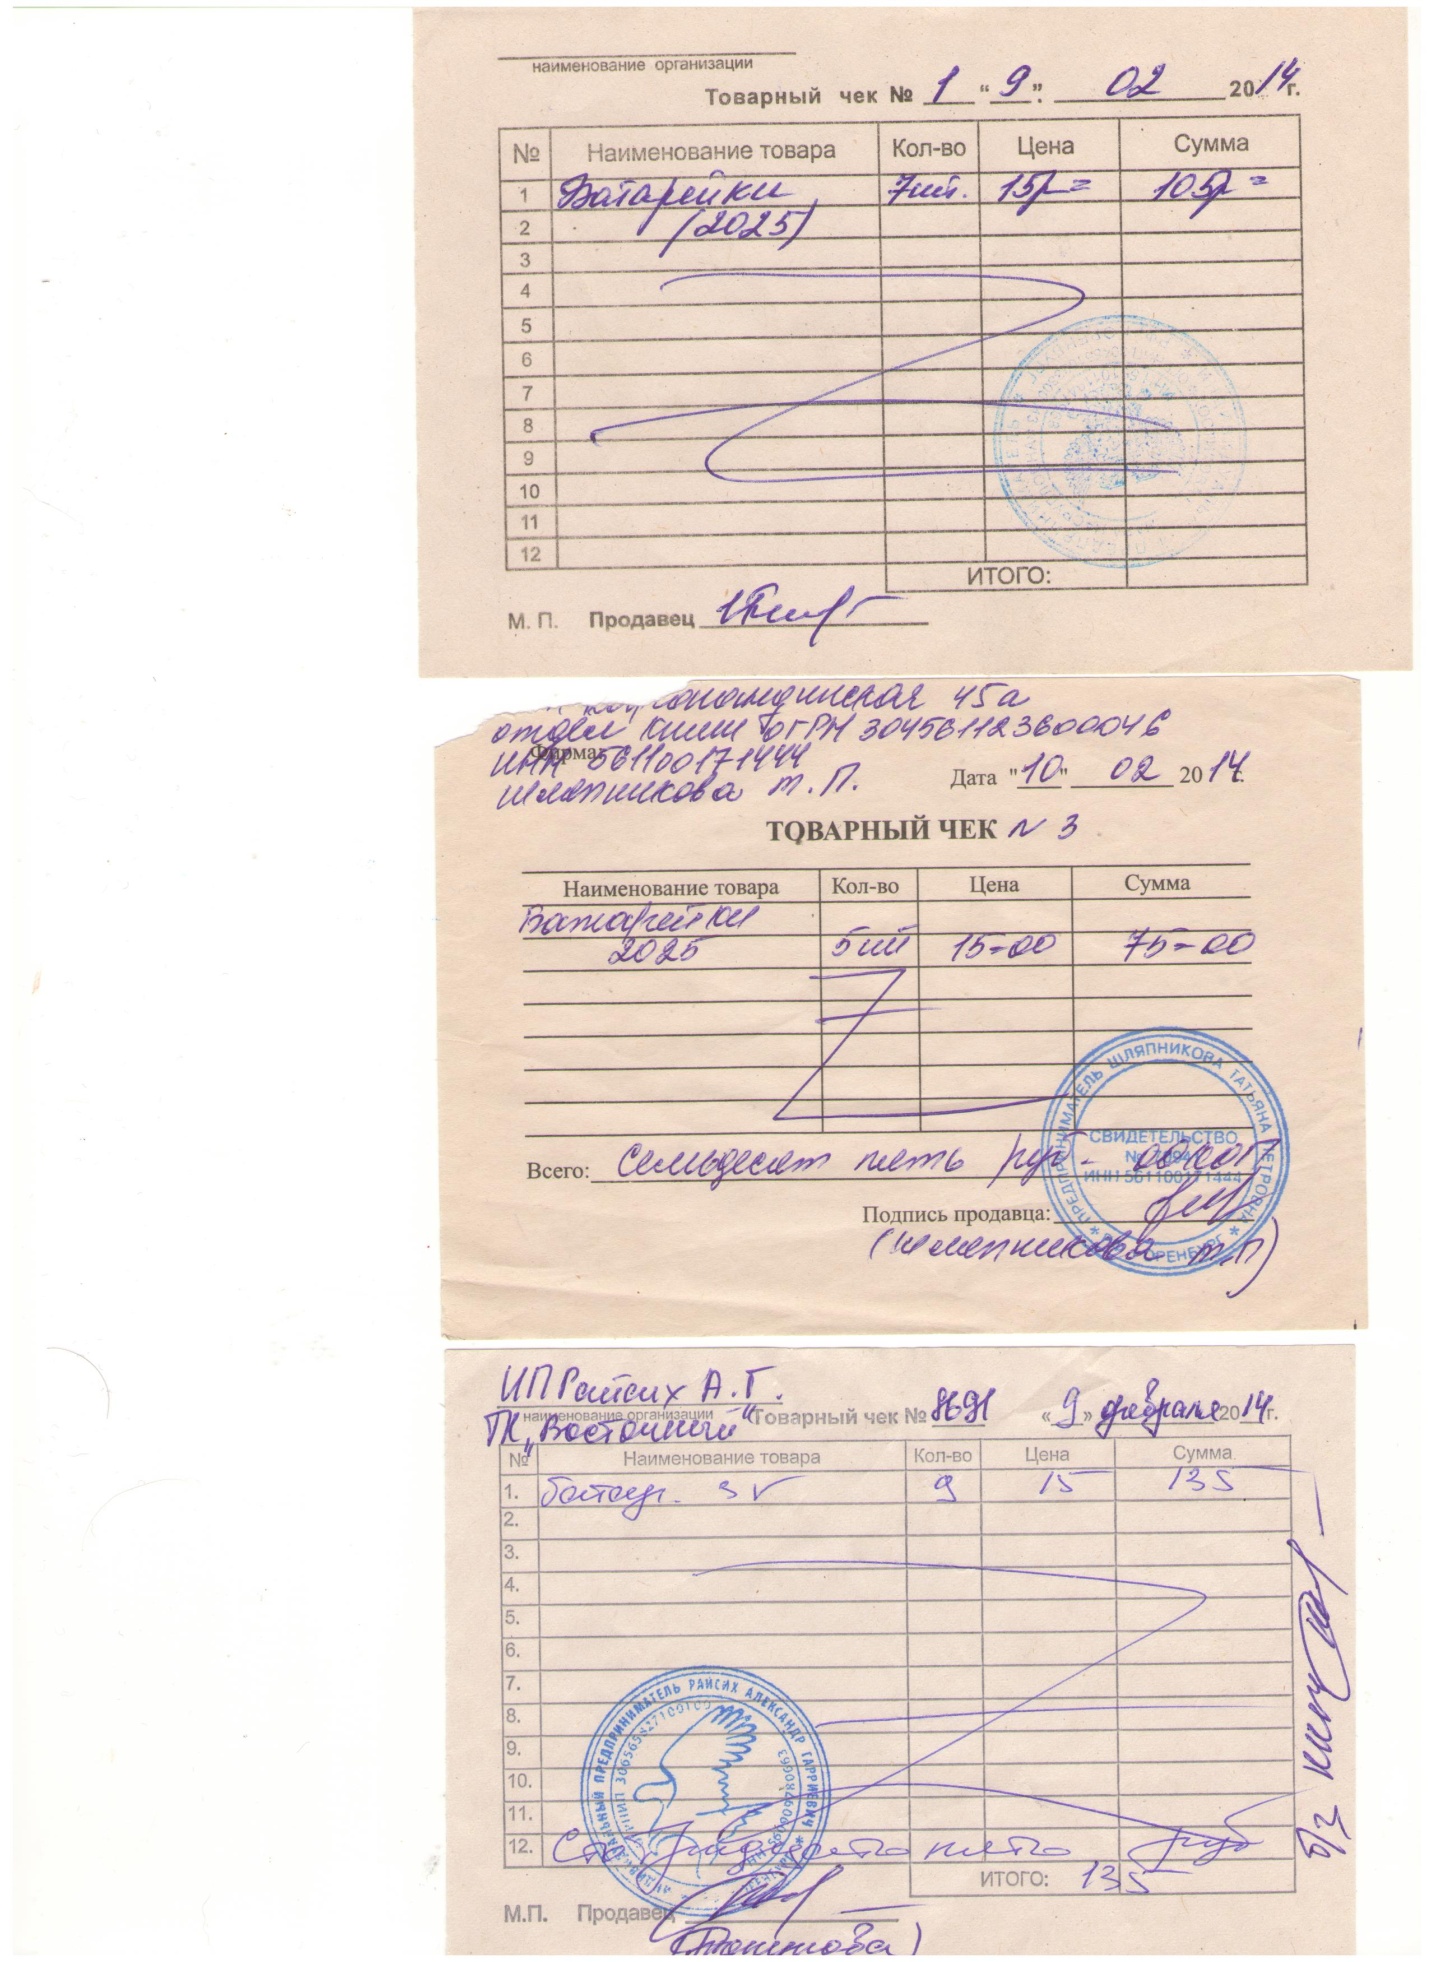 наименование организации
Товарный чек № 1 "9". 02 2014г.
№ Наименование товара Кол-во Цена Сумма
1 Батарейки 7шт. 15р= 105р=
2 (2025)
3
4
5
6
7
8
9
10
11
12
ИТОГО:
М. П. Продавец
45а
отдел ОГРН 304561123600046
Фирма:
ИНН 561100171444
Шляпникова Т. П.
Дата "10" 02 2014г.
ТОВАРНЫЙ ЧЕК N 3
Наименование товара Кол-во Цена Сумма
Батарейки
2025 5шт 15=00 75=00
ПРЕДПРИНИМАТЕЛЬ ШЛЯПНИКОВА ТАТЬЯНА ПЕТРОВНА
СВИДЕТЕЛЬСТВО
№
ИНН 561100171444
ОРЕНБУРГ
Всего: Семьдесят пять руб - 00коп
Подпись продавца:
(Шляпникова Т.П)
ИП Райсих А.Г.
наименование организации
ТК "Восточный"
Товарный чек № «9» февраля 2014г.
№ Наименование товара Кол-во Цена Сумма
1. батар. 3V 9 15 135
2.
3.
4.
5.
6.
7.
8.
9.
10.
11.
12. Сто тридцать пять руб
ИНДИВИДУАЛЬНЫЙ ПРЕДПРИНИМАТЕЛЬ РАЙСИХ АЛЕКСАНДР ГАРРИЕВИЧ
ИТОГО: 135
М.П. Продавец
б/з